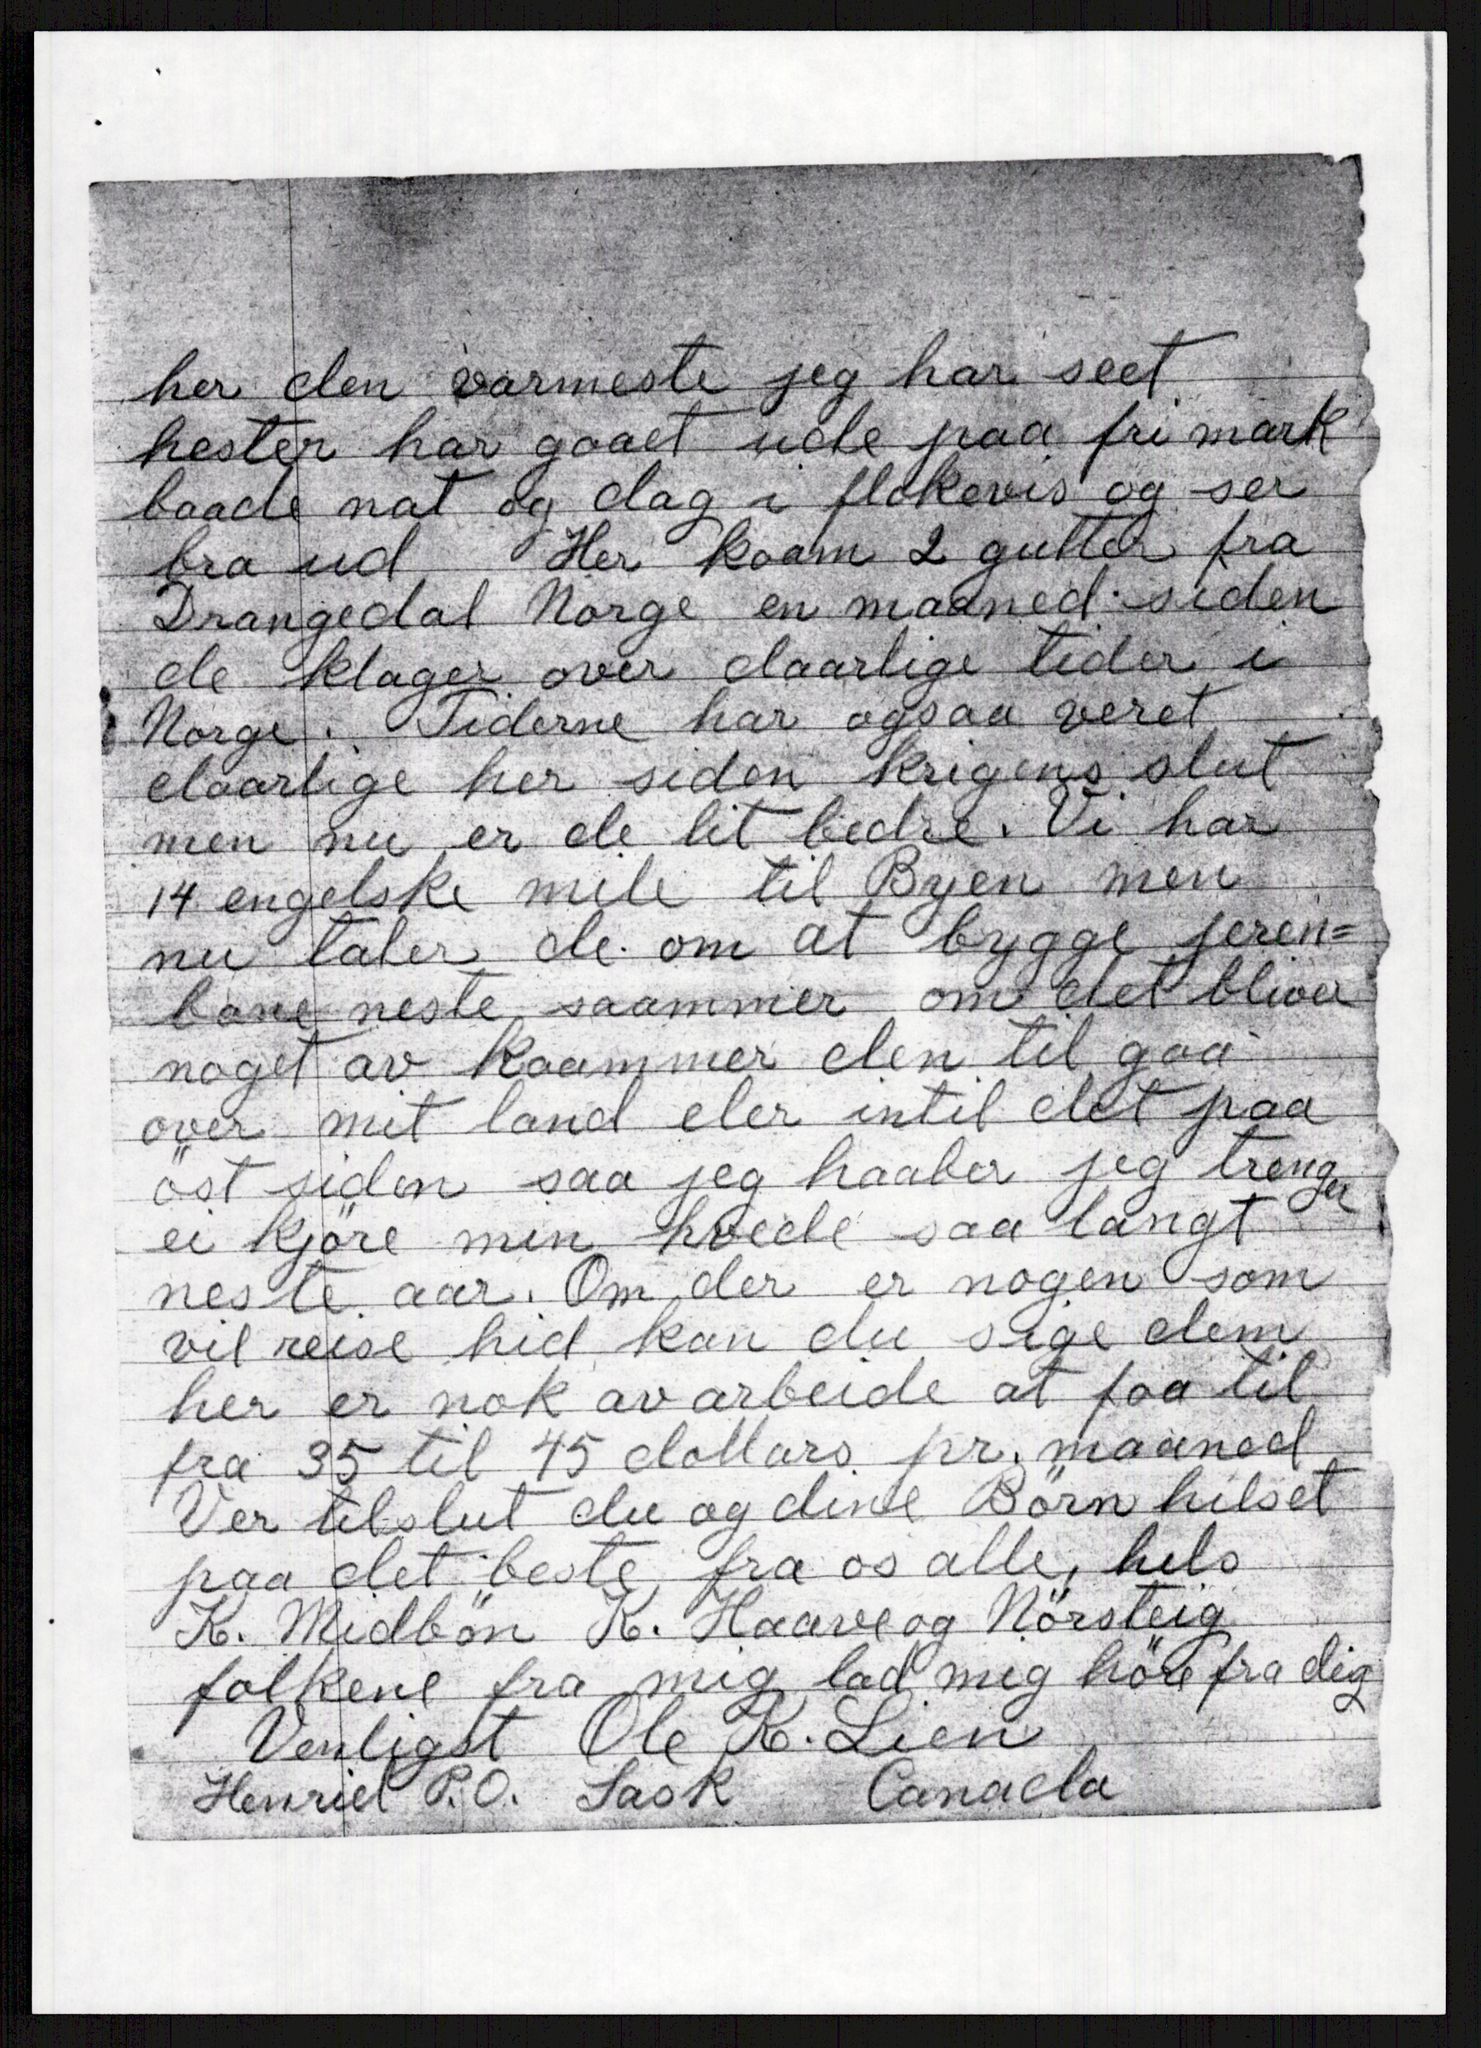 her den varmeste jeg har seet
hester har gaaet ude paa fri mark
baade nat og dag i flokevis og ser
bra ud Her kaam 2 gutter fra
Drangedal Norge en maaned siden
de klager over daarlige tider i
Norge. Tiderne har ogsaa veret
daarlige her siden krigens slut
men nu er de lit bedre. Vi har
14 engelske mile til Byen men
nu taler de om at bygge jeren=
bane neste saammer om det bliver
noget av kaammer den til gaa
over mit land eler intil det paa
öst siden saa jeg haaber jeg trenger
ei kjöre min hvede saa langt
neste aar. Om der er nogen som
vil reise hid kan du sige dem
her er nok av arbeide at faa til
fra 35 til 45 dollars pr. maaned
Ver tilslut du og dine Börn hilset
paa det beste fra os alle, hils
K. Midbön K. Haave og Nörsteig
folkene fra mig lad mig höre fra dig
Venligst Ole K. Lien
Henriet P.O. Sask Canada